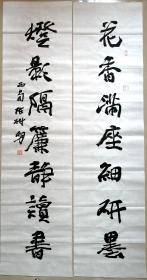 花香满座細研墨
燈影隔簾静讀書